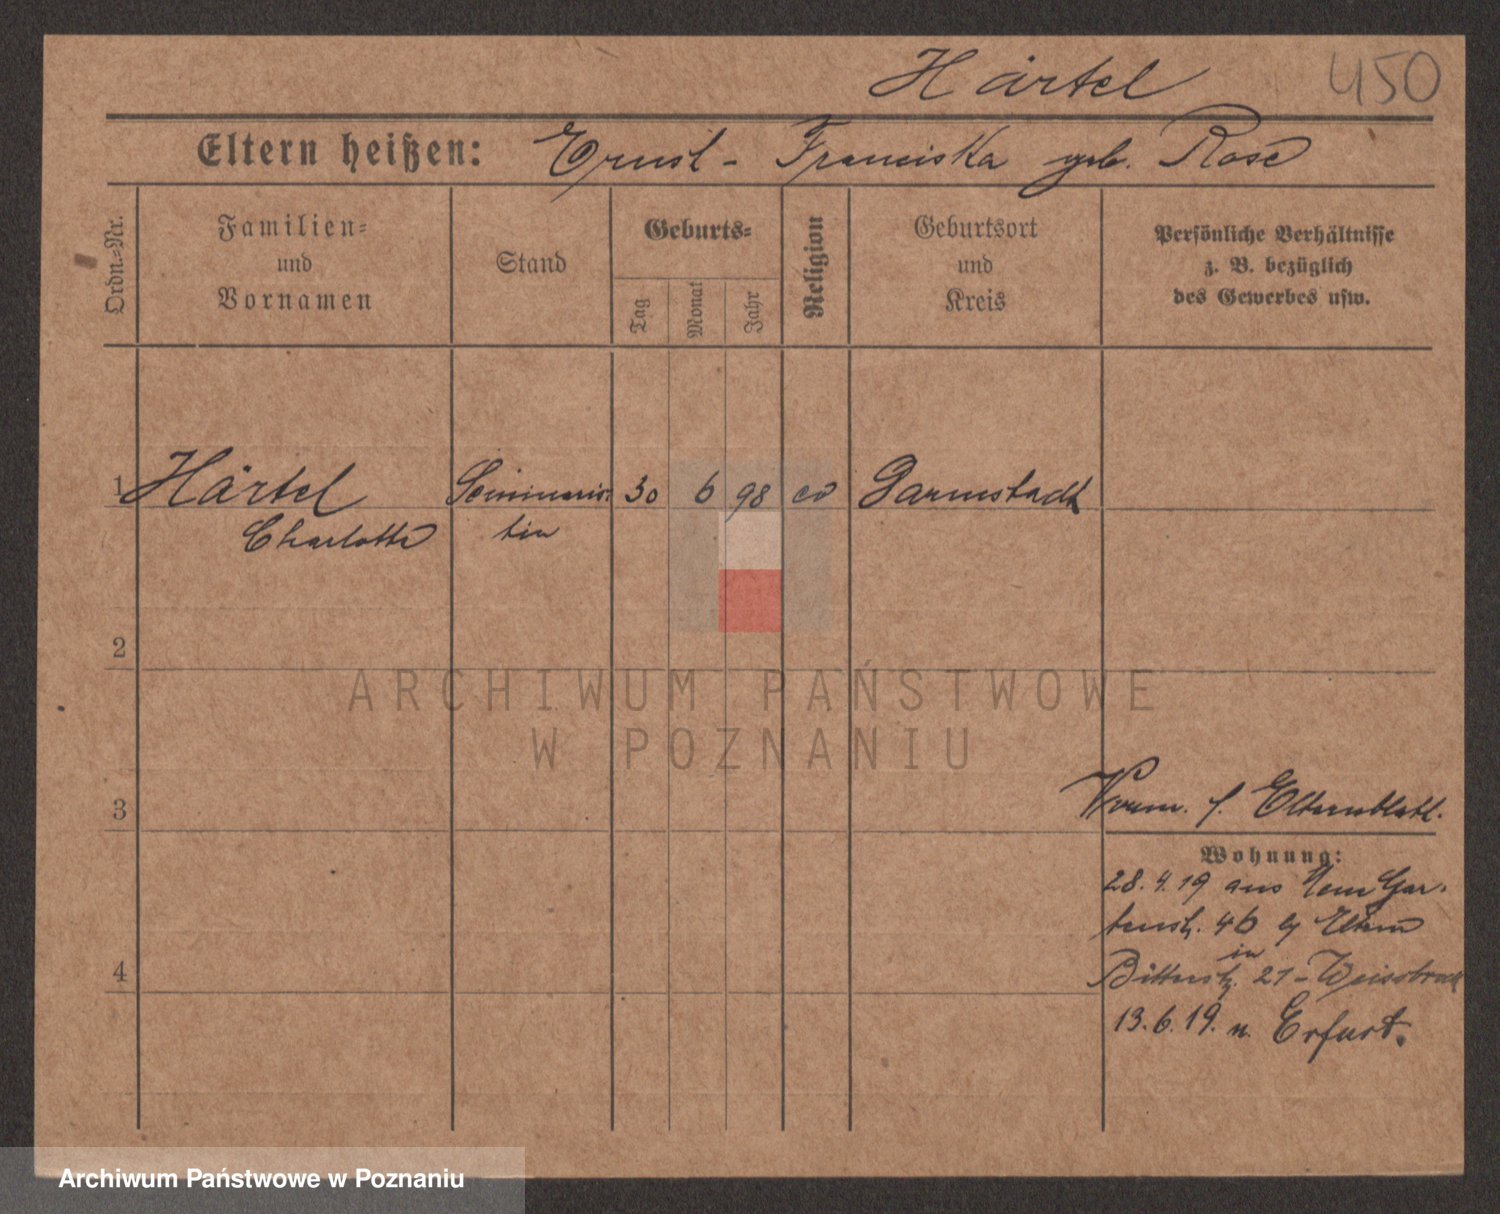 Härtel 450
Eltern heißen: Ernst - Franciska geb. Rose
Ordn.=Nr.
Familien=
und
Vornamen
Stand
Geburts=
Tag
Monat
Jahr
Religion
Geburtsort
und
Kreis
Persönliche Verhältnisse
z. B. bezüglich
des Gewerbes usw.
1 Härtel Seminaris= 30 6 98 ev Darmstadt
Charlotte tin
2
ARCHIWUM PAŃSTWOWE
W POZNANIU
3
Vorm. s. Elternblatt.
Wohnung:
28.4.19 aus Gar=
tenstr. 46 Eltern
in
21 -
4
13.6.19. n. Erfurt.
Archiwum Państwowe w Poznaniu